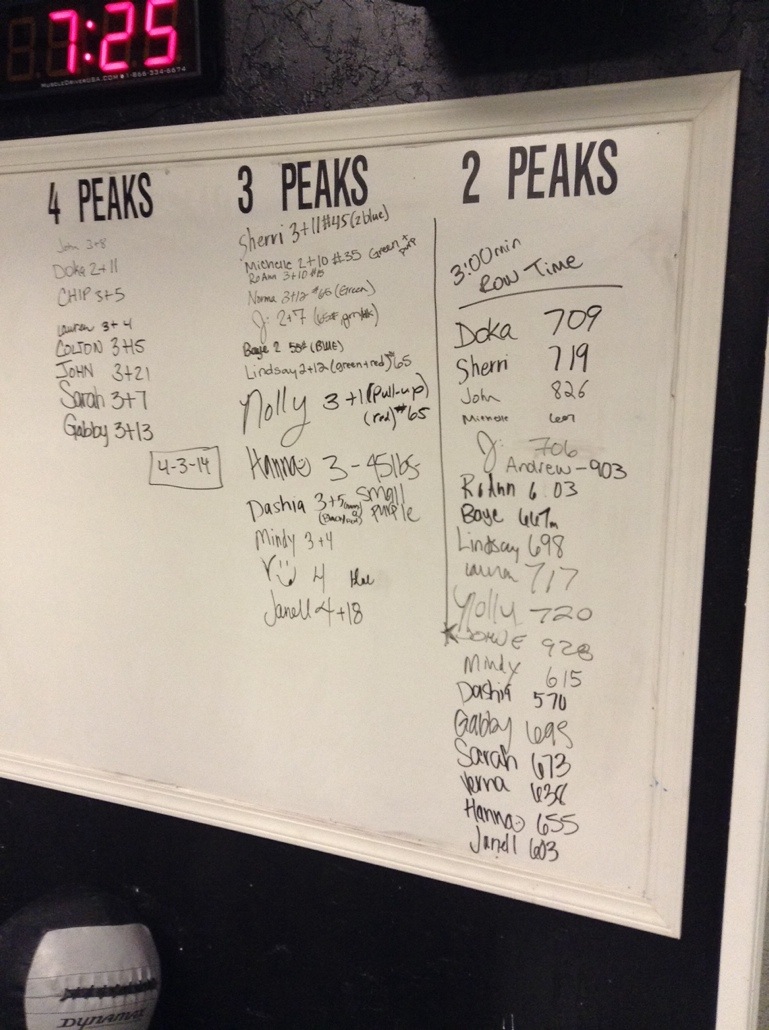 7:25
MUSCLEDRIVERUSA.COM 1-866-334-6674
4 PEAKS
John 3+8
Doka 2+11
CHIP 3+5
Lauren 3+4
COLTON 3+15
JOHN 3+21
Sarah 3+7
Gabby 3+13
4-3-14
3 PEAKS
Sherri 3+11 #45 (2 blue)
Michelle 2+10 #35 Green +
RoAnn 3+10
Norma 3+12 #65 (Green)
J: 2+7
Baye 2 55# (BLUE)
Lindsay 2+12 (green+red) #65
Nolly 3+1 (Pull-up)
(red) #65
Hanna 3-45lbs
Dashia 3+5 small
purple
Mindy 3+4
V 4 blue
Janell 4+18
2 PEAKS
3:00 min
Row Time
Doka 709
Sherri 719
John 826
Michelle 607
J: 706
Andrew-903
RoAnn 603
Baye 667m
Lindsay 698
Lauren 717
Nolly 720
928
Mindy 615
Dashia 570
Gabby 695
Sarah 673
Verna 638
Hanna 655
Janell 603
DYNAMAX